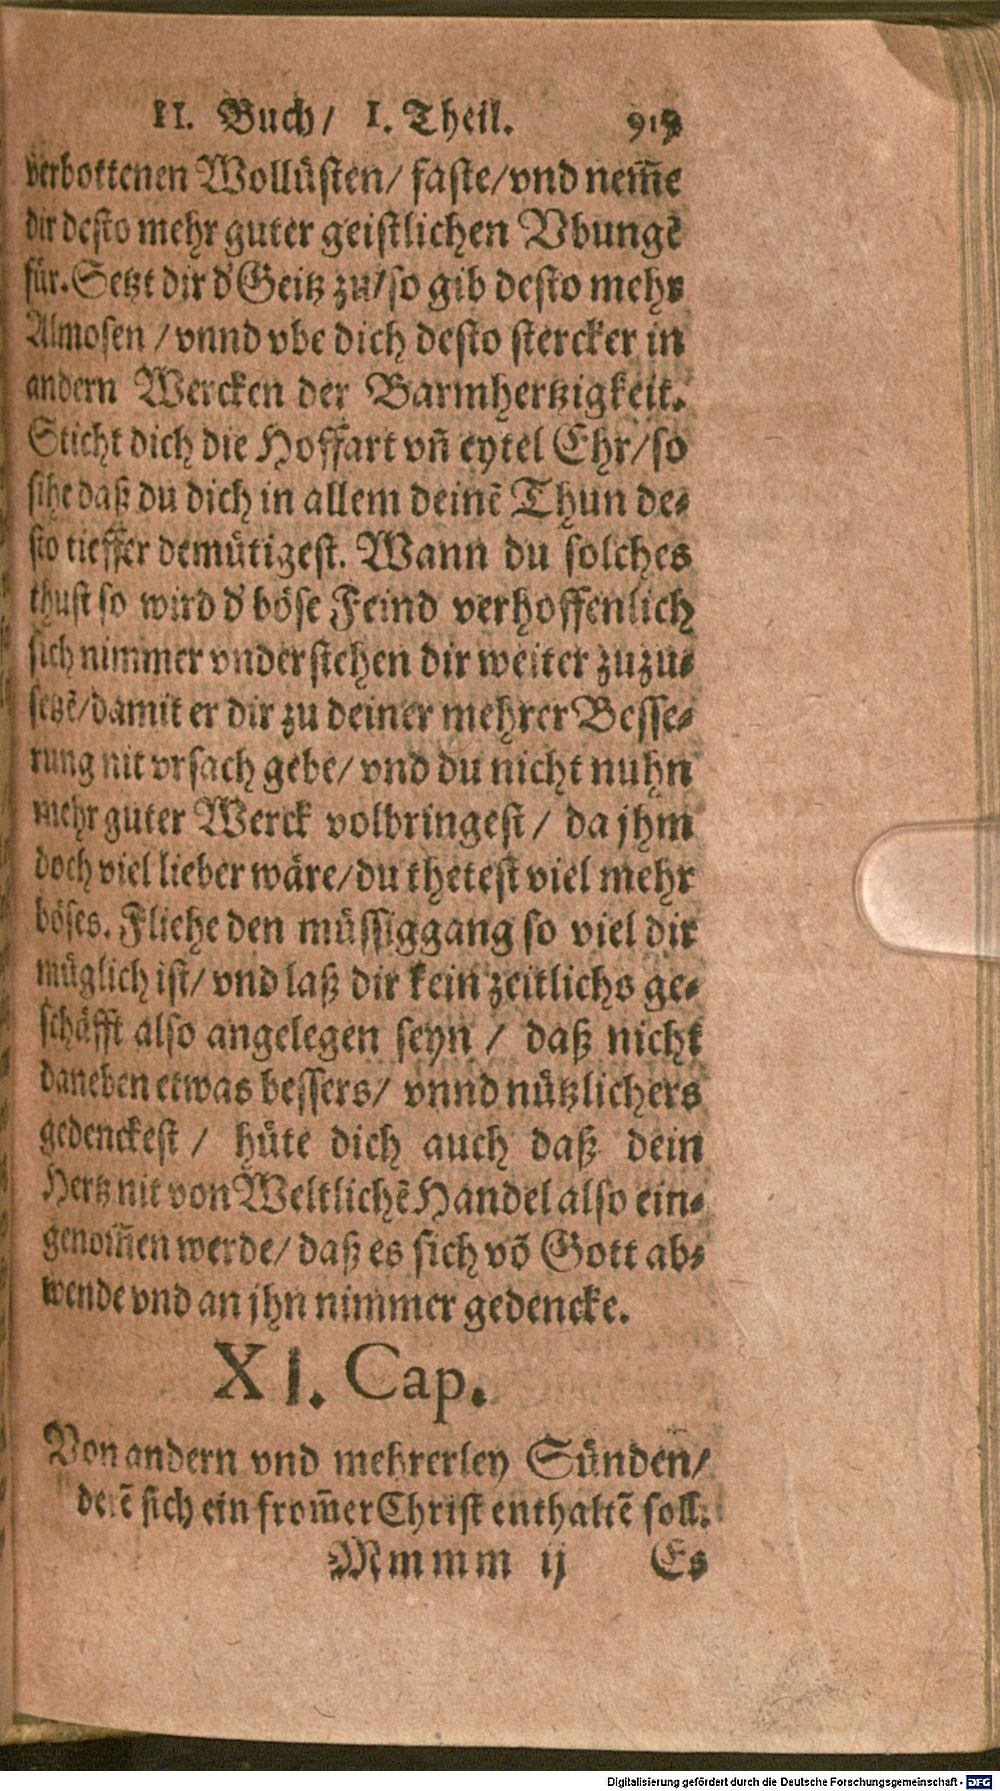 II. Buch/ I. Theil. 919
verbottenen Wollüsten/ faste/vnd nem̃e
dir desto mehr guter geistlichen Vbungẽ
für. Setzt dir d' Geitz zu/so gib desto mehr
Almosen /vnnd vbe dich desto stercker in
andern Wercken der Barmhertzigkeit.
Sticht dich die Hoffart vñ eytel Ehr/so
sihe daß du dich in allem deinẽ Thun de-
sto tieffer demütigest. Wann du solches
thust so wird d' böse Feind verhoffenlich
sich nimmer vnderstehen dir weiter zuzu-
setzẽ/damit er dir zu deiner mehrer Besse-
rung nit vrsach gebe/ vnd du nicht nuhn
mehr guter Werck volbringest/ da jhm
doch viel lieber wäre/du thetest viel mehr
böses. Fliehe den müssiggang so viel dir
müglich ist/ vnd laß dir kein zeitlichs ge-
schäfft also angelegen seyn / daß nicht
daneben etwas bessers/ vnnd nützlichers
gedenckest / hüte dich auch daß dein
Hertz nit von Weltlichẽ Handel also ein-
genom̃en werde/ daß es sich võ Gott ab-
wende vnd an jhn nimmer gedencke.
XI. Cap.
Von andern vnd mehrerley Sünden/
derẽ sich ein from̃er Christ enthaltẽ soll.
Mmmm ij Es
Digitalisierung gefördert durch die Deutsche Forschungsgemeinschaft - DFG